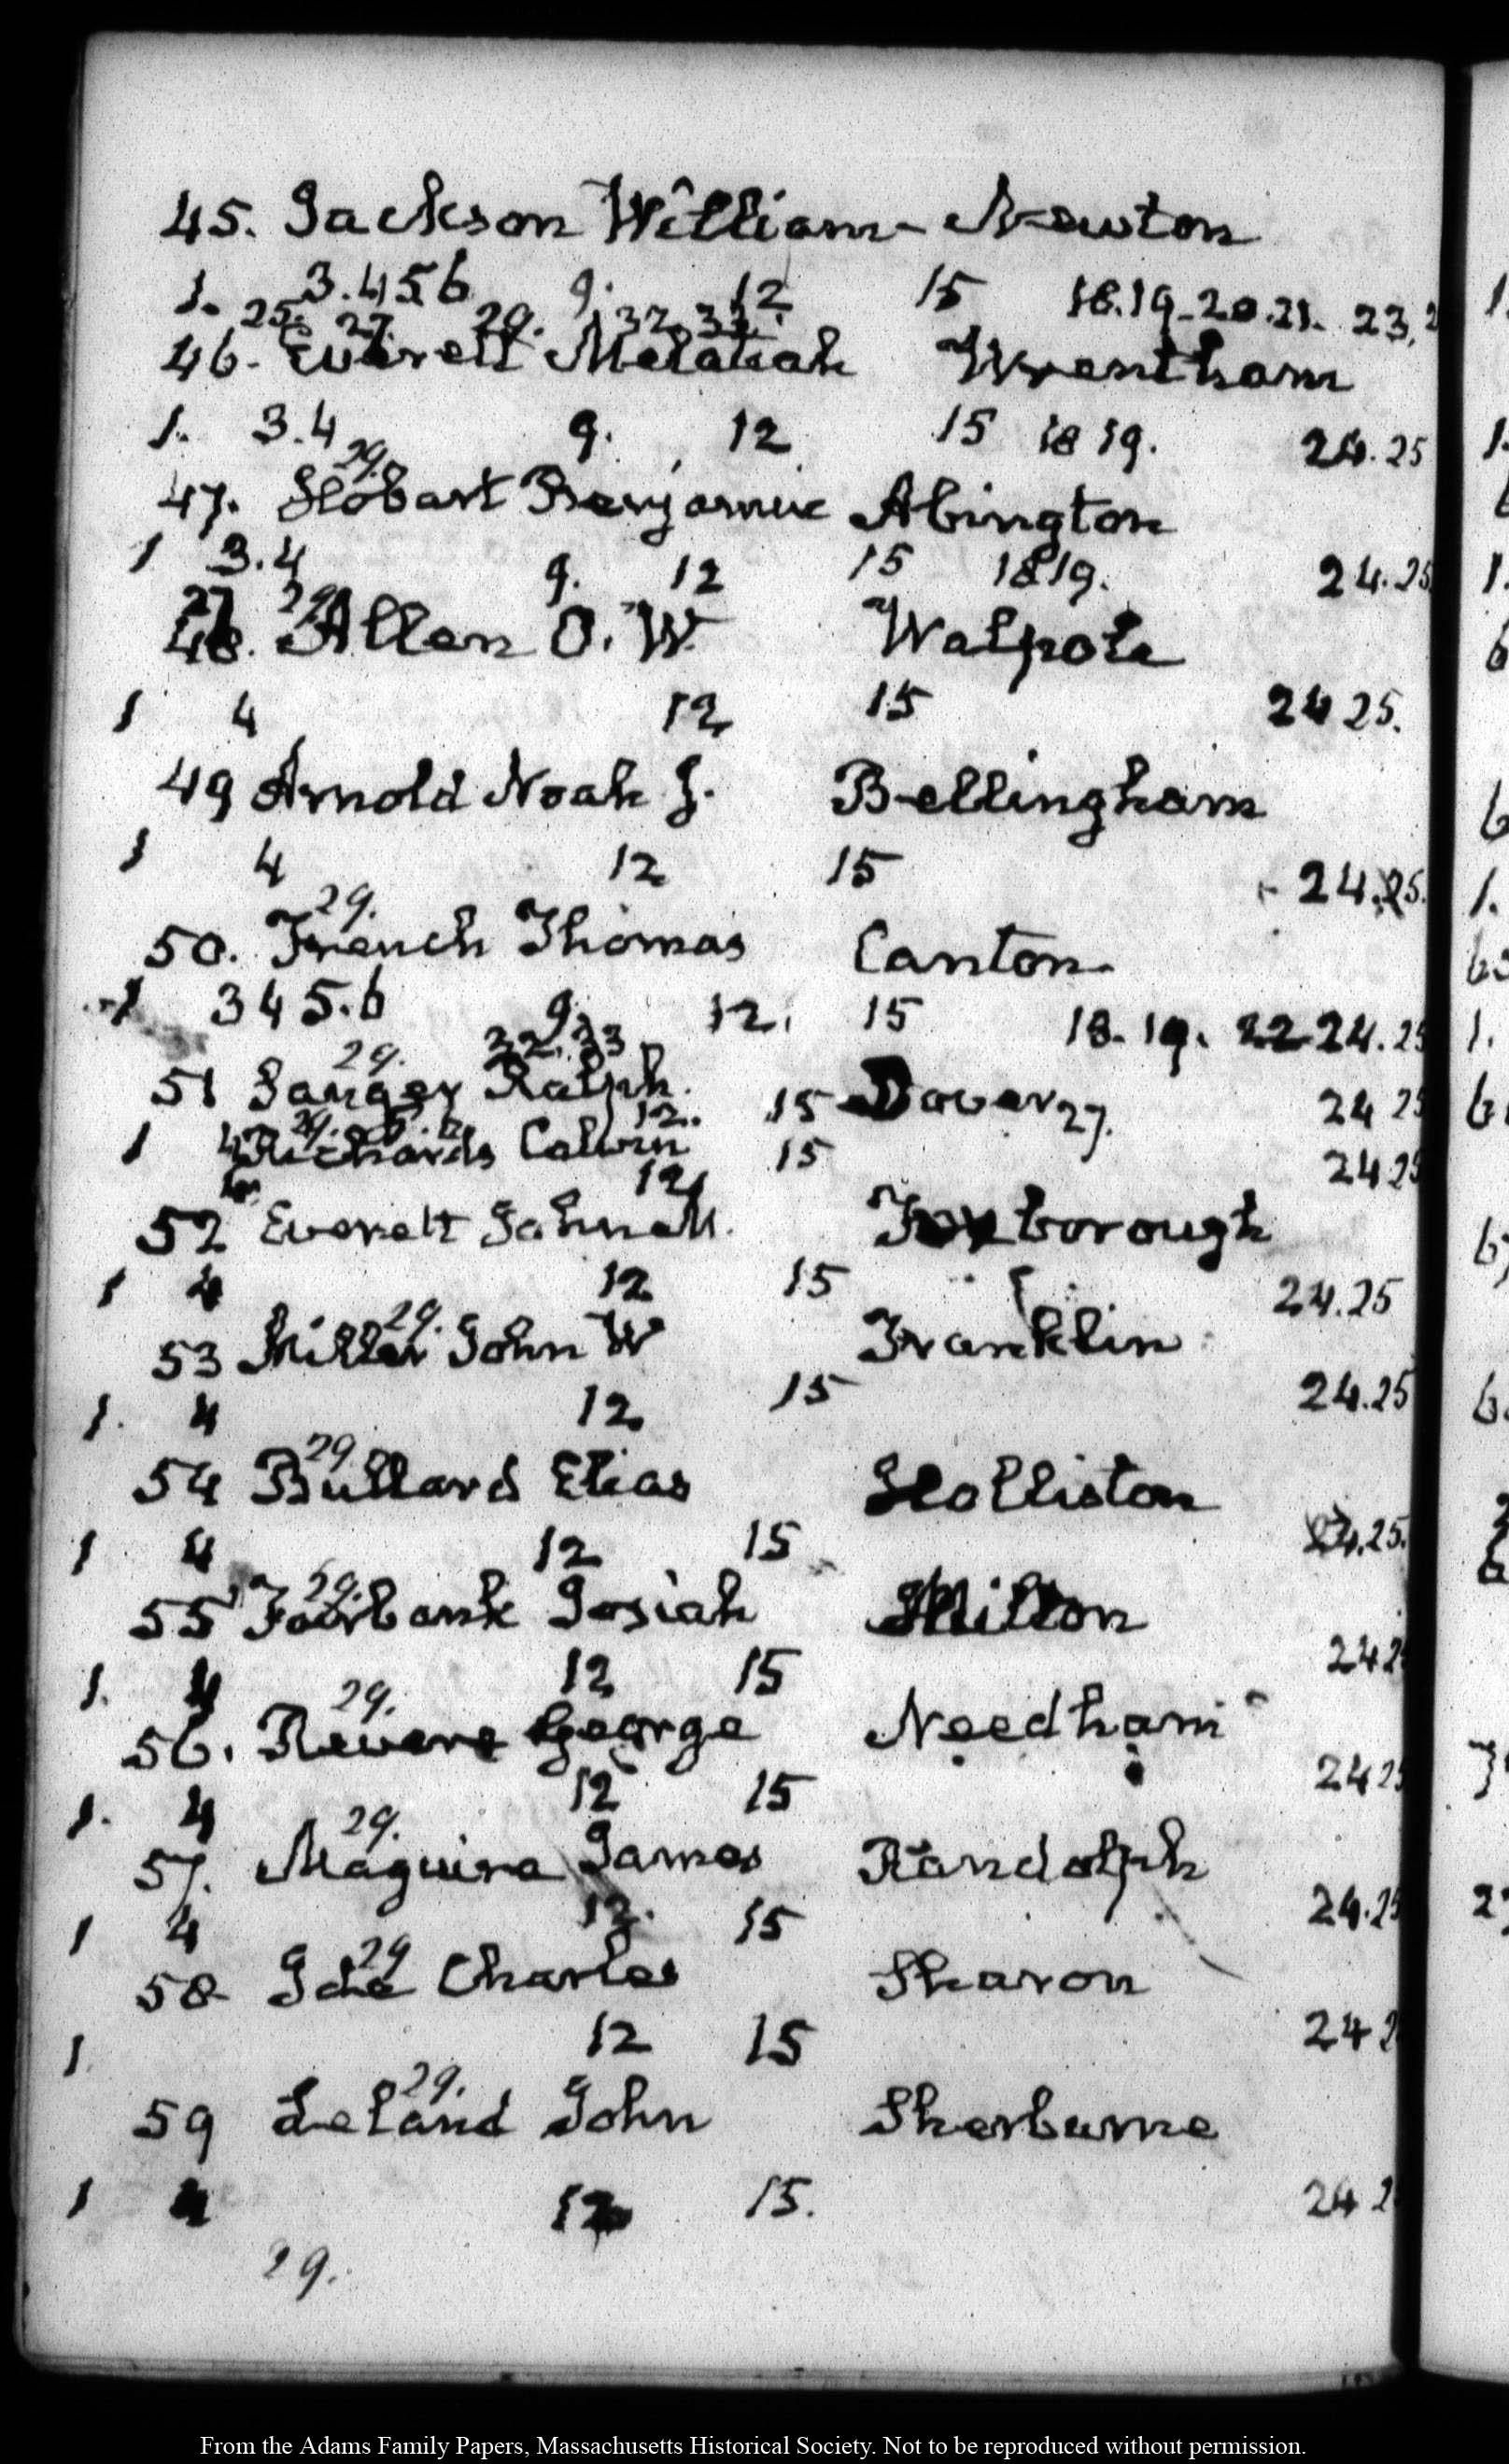 45. Jackson William - Newton
1. 3.4 5 6 9. 12 15 18.19-20.21. 23,2
25. 27. 29. 32. 33.
46. Everett Melatiah Wrentham
1. 3.4 9. 12 15 18 19. 24.25
29.
47. Hobart Benjamin Abington
1 3.4 9. 12 15 18 19. 24.25
27 29
48. Allen O. W. Walpole
1 4 12 15 24 25.
49 Arnold Noah J. Bellingham
1 4 12 15 24.25.
29.
50. French Thomas Canton.
1 3 4 5.6 9. 12. 15 18. 19. 22 24.25
29. 32.33
51 Sanger Ralph. 12. 15 Dover 27. 24 25
1 4 Richards Calvin 15 24 25
12
52 Everett John M. Foxborough
1 4 12 15 24.25
29.
53 Miller John W Franklin
1. 4 12 15 24.25
29
54 Bullard Elias Holliston
1 4 12 15 24.25.
29.
55 Fairbank Josiah Milton
1. 4 12 15 24 2
29.
56. Revere George Needham
1. 4 12 15 24 25
29.
57. Maguire James Randolph
1 4 12. 15 24.25
29
58 Ide Charles Sharon
1. 12 15 24 2
29.
59 Leland John Sherburne
1 4 12 15. 24 2
29.
From the Adams Family Papers, Massachusetts Historical Society. Not to be reproduced without permission.